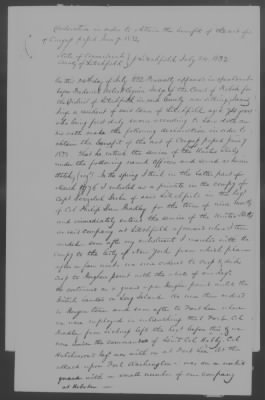 Declaration in order to obtain the benefit of the act of
of Congress passed June 7 1832.
State of Connecticut
County of Litchfield } Litchfield July 24 1832
On this 24th day of July 1832 Personally appeared in open court
before the Court of Probate for
the District of Litchfield in said County now sitting
a resident of said town of Litchfield aged years
who being first duly sworn according to law doth on
his oath make the following declaration in order to
obtain the benefit of the act of Congress passed June 7
1832. That he entered the service of the United States
under the following named officers and served as herein
stated (viz). In the spring I think in the latter part of
March 1776 I enlisted as a private in the company of
Capt. Beebe of said Litchfield in the Regt
of Col. Philip Burr Bradley for the term of nine months
and immediately entered the service of the United States
in said company at Litchfield aforesaid where I then
resided. soon after my enlistment I marched with the
company to the City of New York, from which place
after a few we were ordered to
to Bergen point with the rest of our Regt.
We continued as a guard upon Bergen point until the
British landed on Long Island. We were then ordered
to Bergen town and soon after to Fort Lee where
we were employed in the Fort. Col.
Bradley from sickness left the Fort before this & we
were under the command of Lieut. Col. Hobby. Col.
left was with us at Fort Lee. At the
attack upon Fort Washington I was on a
guard with a small number of our company
at